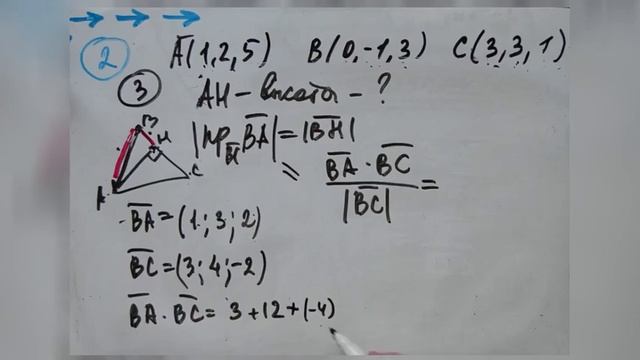 ② A(1,2,5) B(0,-1,3) C(3,3,1)
③ AH – высота – ?
|пр_H BA| = |BH|
= BA · BC / |BC| =
B
H
A
C
BA = (1; 3; 2)
BC = (3; 4; -2)
BA · BC = 3 + 12 + (-4)